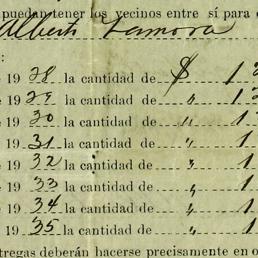 puedan tener los vecinos entre sí para
Alberto Zamora
e 1928 la cantidad de $ 1
e 1929 la cantidad de " 1
e 1930 la cantidad de " 1
e 1931 la cantidad de " 1
e 1932 la cantidad de " 1
e 1933 la cantidad de " 1
e 1934 la cantidad de " 1
e 1935 la cantidad de " 1
tregas deberán hacerse precisamente en o